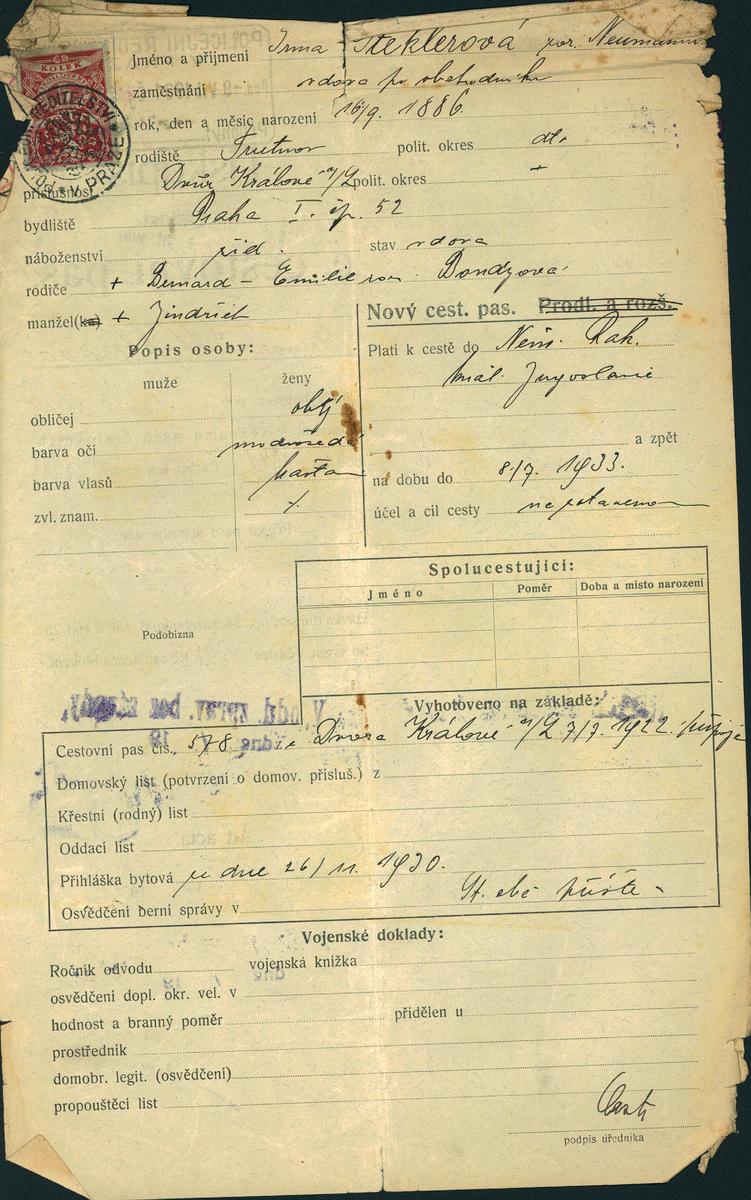 KOLEK
ŘEDITELSTVÍ
V PRAZE
Jméno a příjmení Irma Steklerová roz. Neumannová
zaměstnání vdova po obchodníku
rok, den a měsíc narození 16/9. 1886.
rodiště Trutnov polit. okres dto
příslušnost Dvůr Králové n/L polit. okres
bydliště Praha I. čp. 52
náboženství žid. stav vdova
rodiče + Bernard – Emilie roz. Bondyová
manžel(ka) + Jindřich
Nový cest. pas. Prodl. a rozš.
Popis osoby:
muže ženy
obličej oblý
barva očí modrošedé
barva vlasů kaštan
zvl. znam. /.
Platí k cestě do Něm. Rak.
Ital. Jugoslavie
a zpět
na dobu do 8/7. 1933.
účel a cíl cesty neustanoveno
Spolucestující:
Jméno Poměr Doba a místo narození
Podobizna
Vyhotoveno na základě:
Cestovní pas čís. 578 ze Dvora Králové n/L 7/7. 1922.
Domovský list (potvrzení o domov. přísluš.) z
Křestní (rodný) list
Oddací list
Přihláška bytová ze dne 26/11. 1930.
Osvědčení berní správy v
Vojenské doklady:
Ročník odvodu vojenská knížka
osvědčení dopl. okr. vel. v
hodnost a branný poměr přidělen u
prostředník
domobr. legit. (osvědčení)
propouštěcí list
podpis úředníka